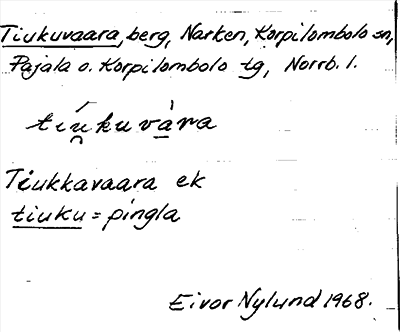 Tiukuvaara, berg, Narken, Korpilombolo sn,
Pajala o. Korpilombolo tg, Norrb. l.
tíu̯kuvà̱ra
Tiukkavaara ek
tiuku = pingla
Eivor Nylund 1968.